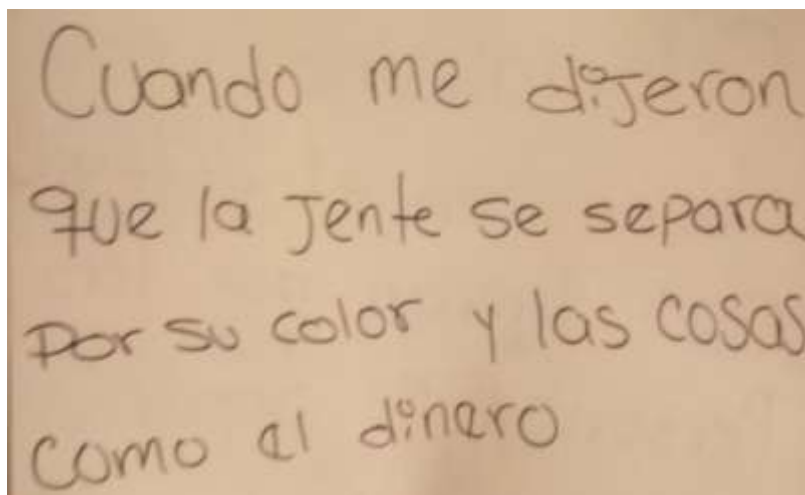 Cuando me dijeron
que la Jente se separa
Por su color y las cosas
como el dinero